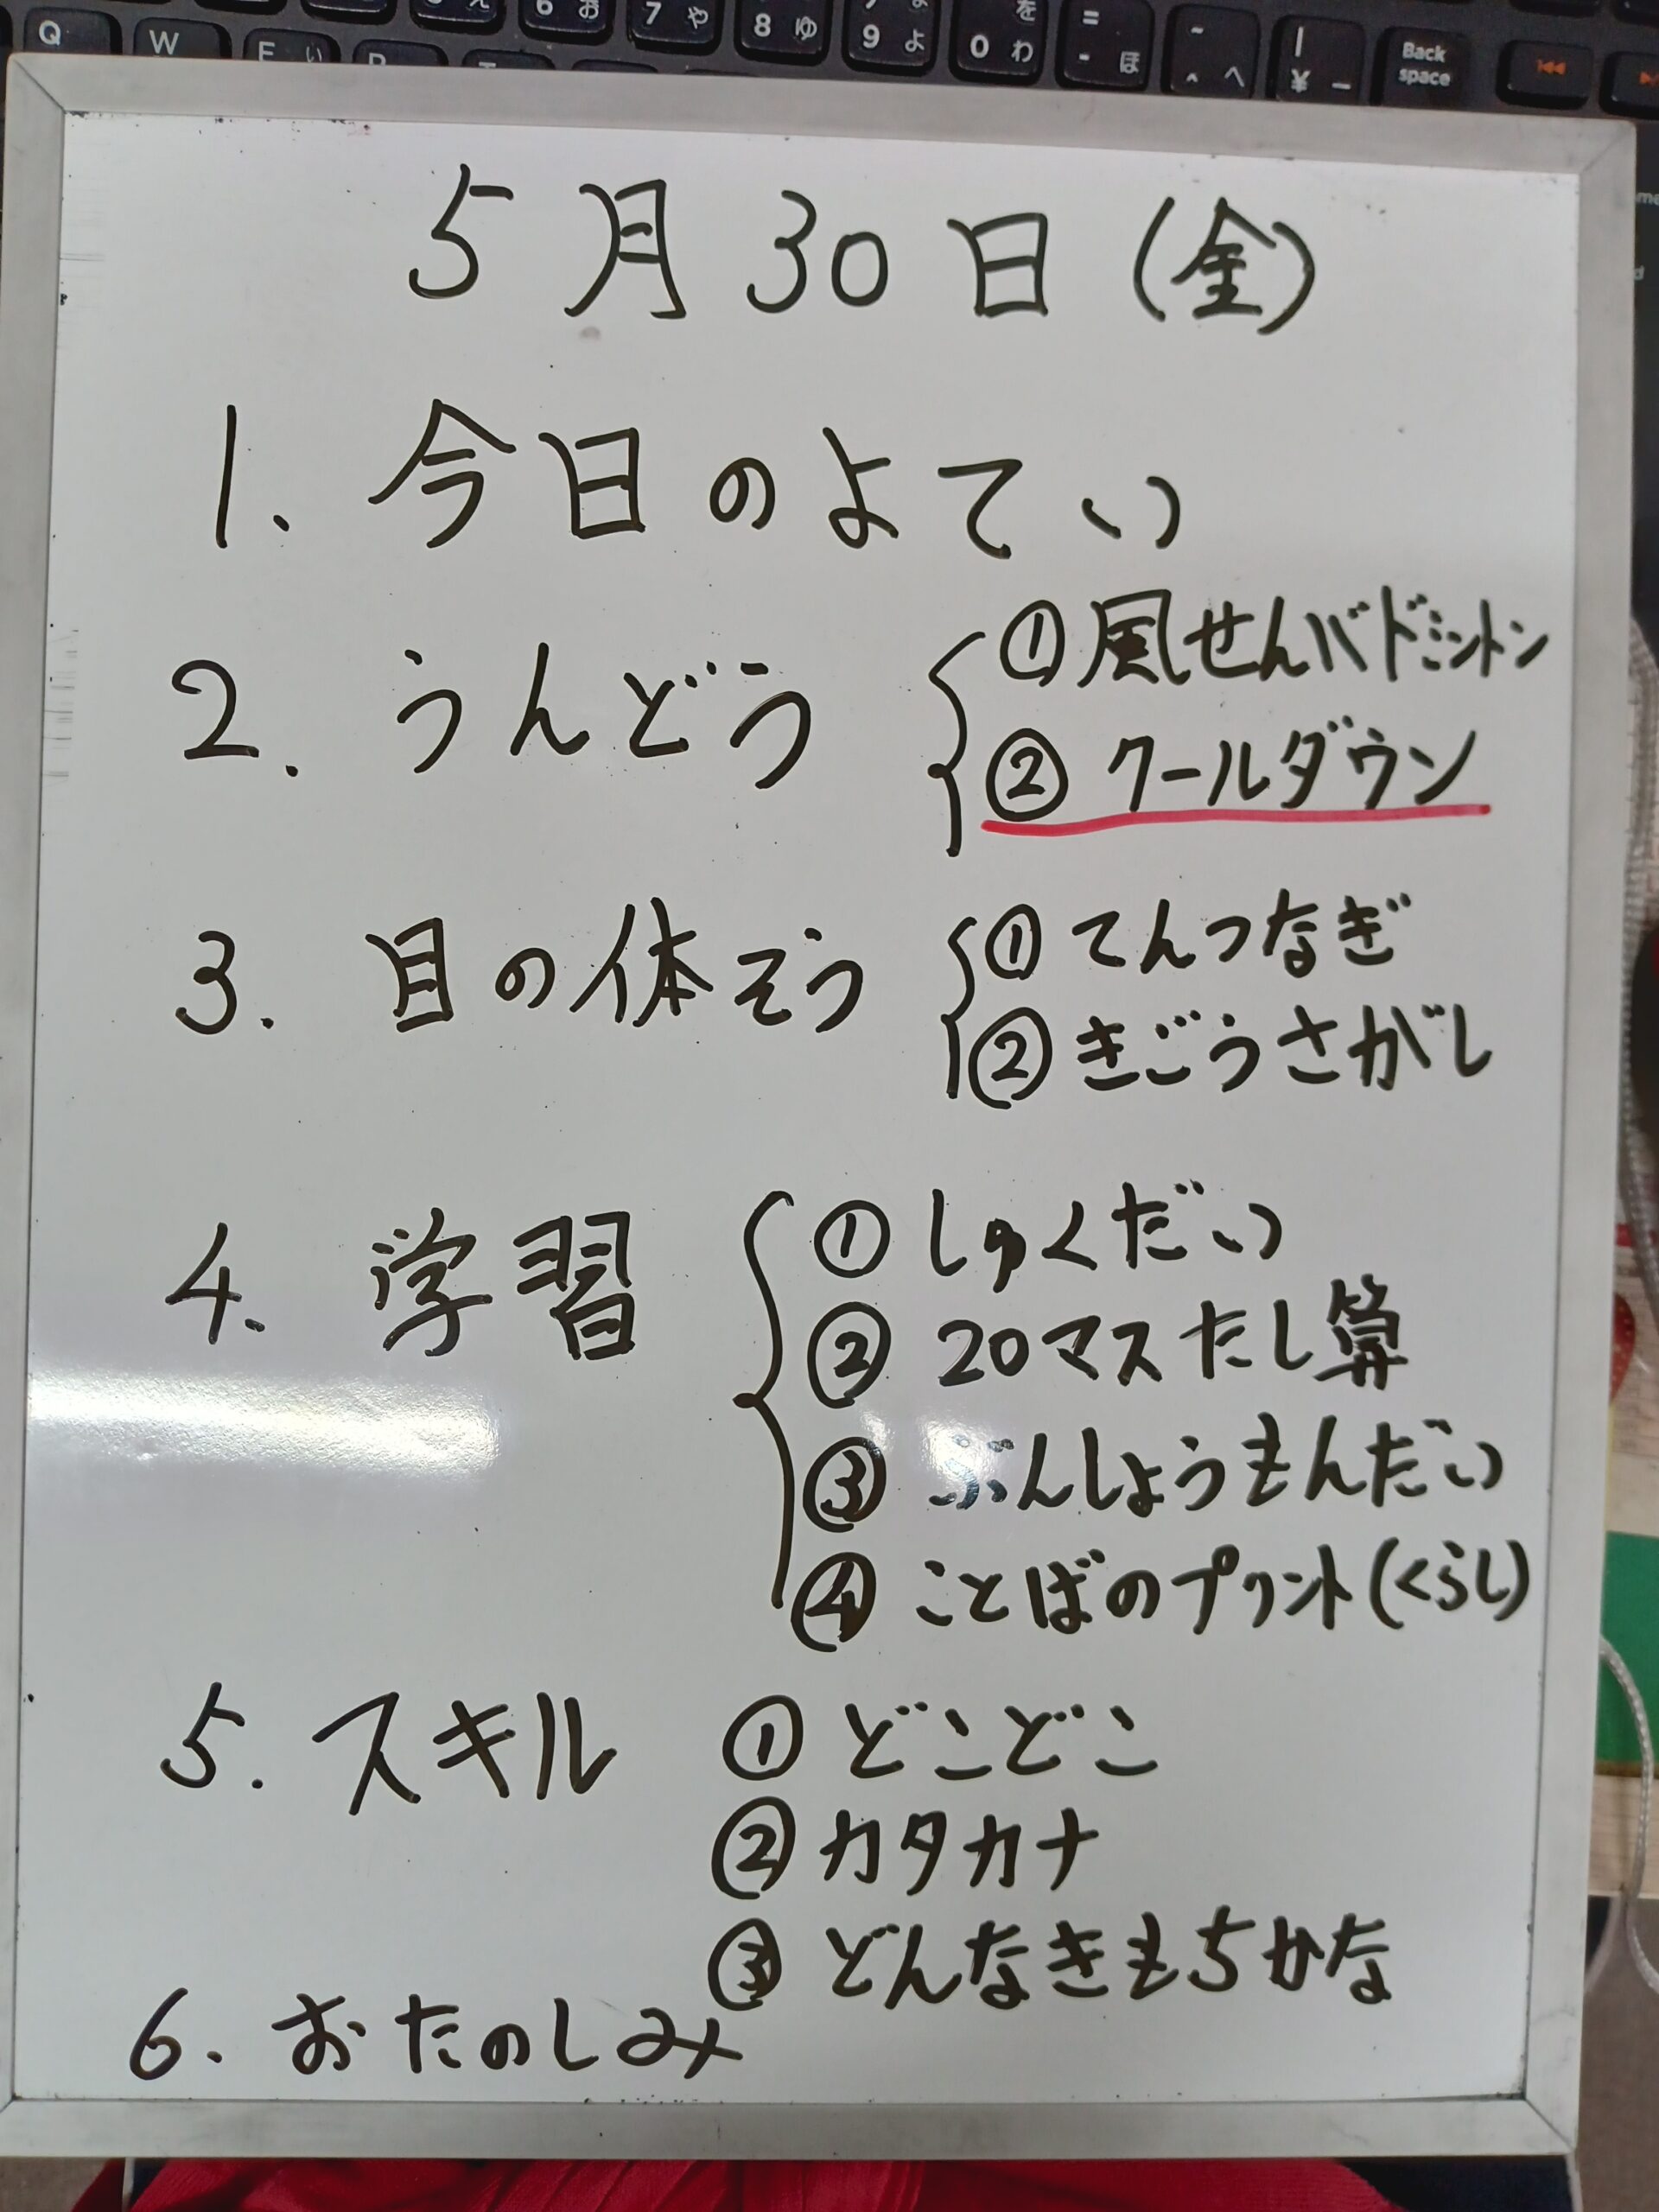 5月30日(金)
1. 今日のよてい
2. うんどう
①風せんバドミントン
②クールダウン
3.目の体そう
①てんつなぎ
②きごうさがし
4. 学習
①しゅくだい
②20マスたし算
③ぶんしょうもんだい
④ことばのプリント(くらし)
5. スキル
①どこどこ
②カタカナ
③どんなきもちかな
6. おたのしみ
Q W E い
6 お 7 や 8 ゆ 9 よ 0 わ を = - ほ ~ ^ へ | ¥ ー
Back space